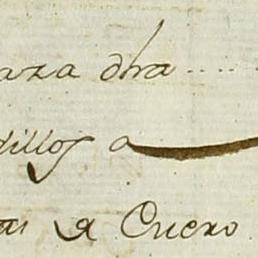 aza dha.....
dillos a
as a Cuero